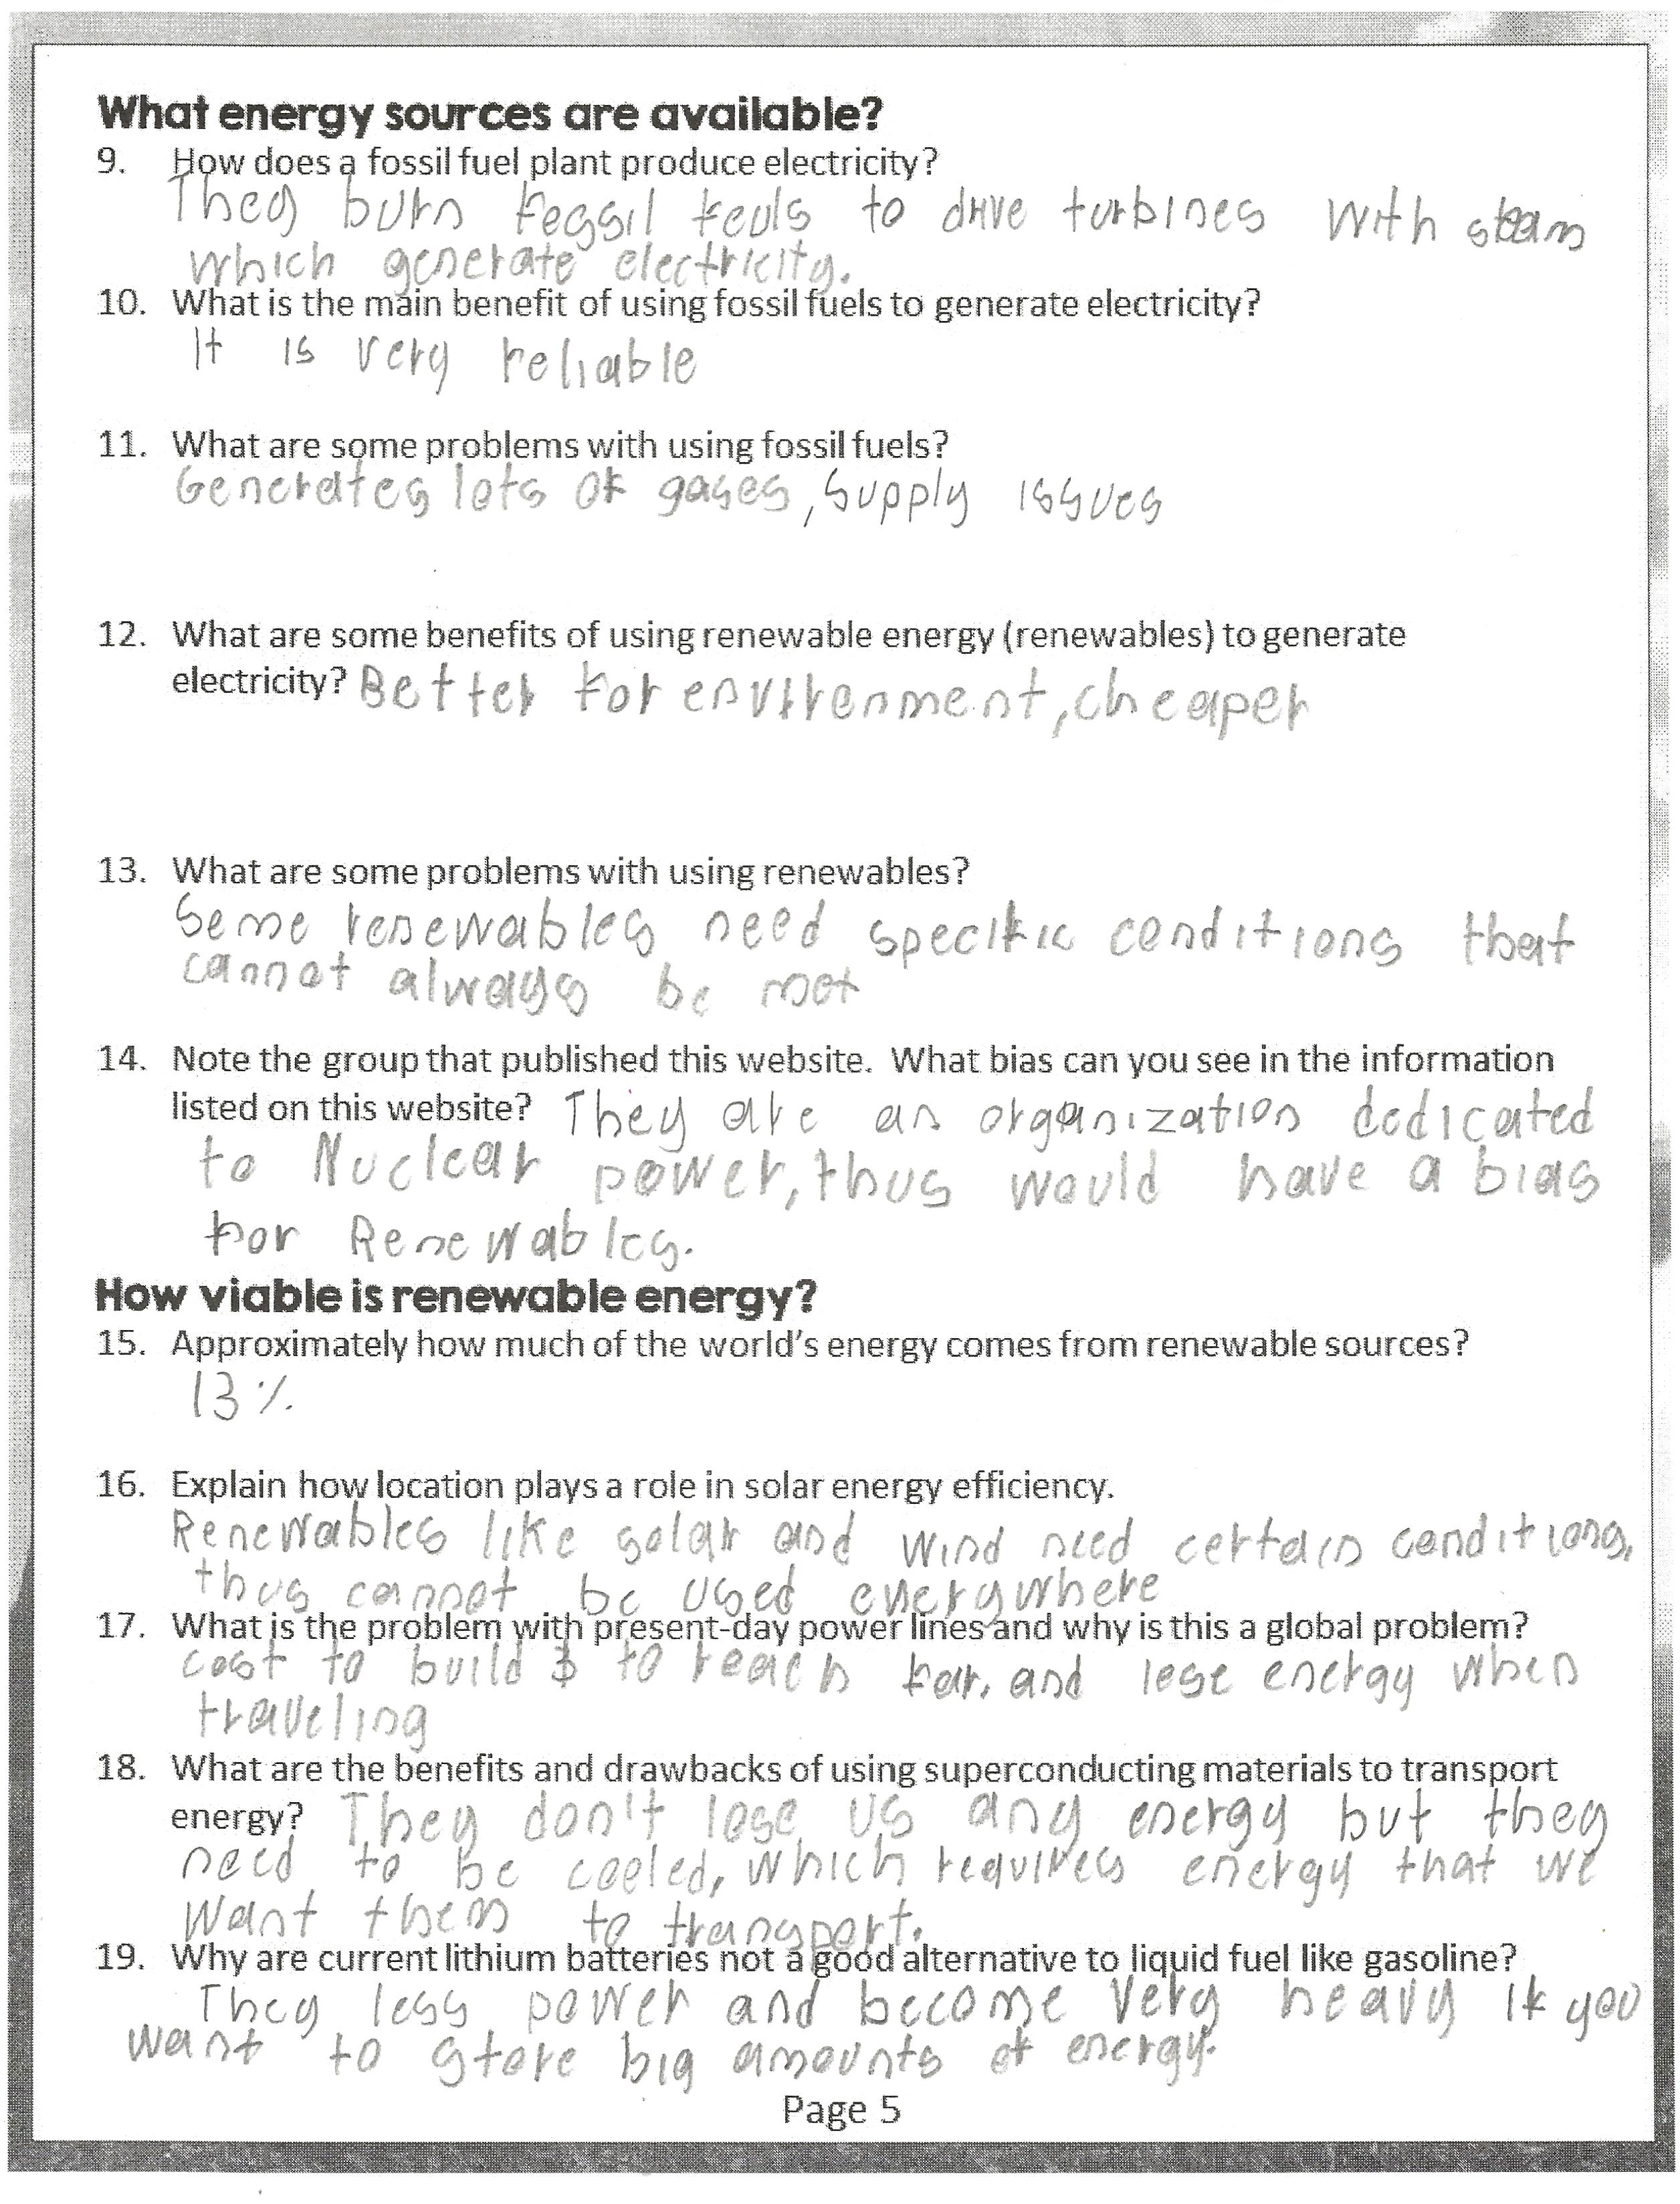 What energy sources are available?
9. How does a fossil fuel plant produce electricity?
They burn fossil feuls to drive turbines with steam
which generate electricity.
10. What is the main benefit of using fossil fuels to generate electricity?
It is very reliable
11. What are some problems with using fossil fuels?
Generates lots of gases, supply issues
12. What are some benefits of using renewable energy (renewables) to generate
electricity? Better for environment, cheaper
13. What are some problems with using renewables?
Some renewables need specific conditions that
cannot always be met
14. Note the group that published this website. What bias can you see in the information
listed on this website? They are an organization dedicated
to Nuclear power, thus would have a bias
for Renewables.
How viable is renewable energy?
15. Approximately how much of the world's energy comes from renewable sources?
13%
16. Explain how location plays a role in solar energy efficiency.
Renewables like solar and wind need certain conditions,
thus cannot be used everywhere
17. What is the problem with present-day power lines and why is this a global problem?
cost to build $ to reach far. and lose energy when
traveling
18. What are the benefits and drawbacks of using superconducting materials to transport
energy? They don't lose us any energy but they
need to be cooled, which requires energy that we
want them to transport.
19. Why are current lithium batteries not a good alternative to liquid fuel like gasoline?
They less power and become very heavy if you
want to store big amounts of energy.
Page 5